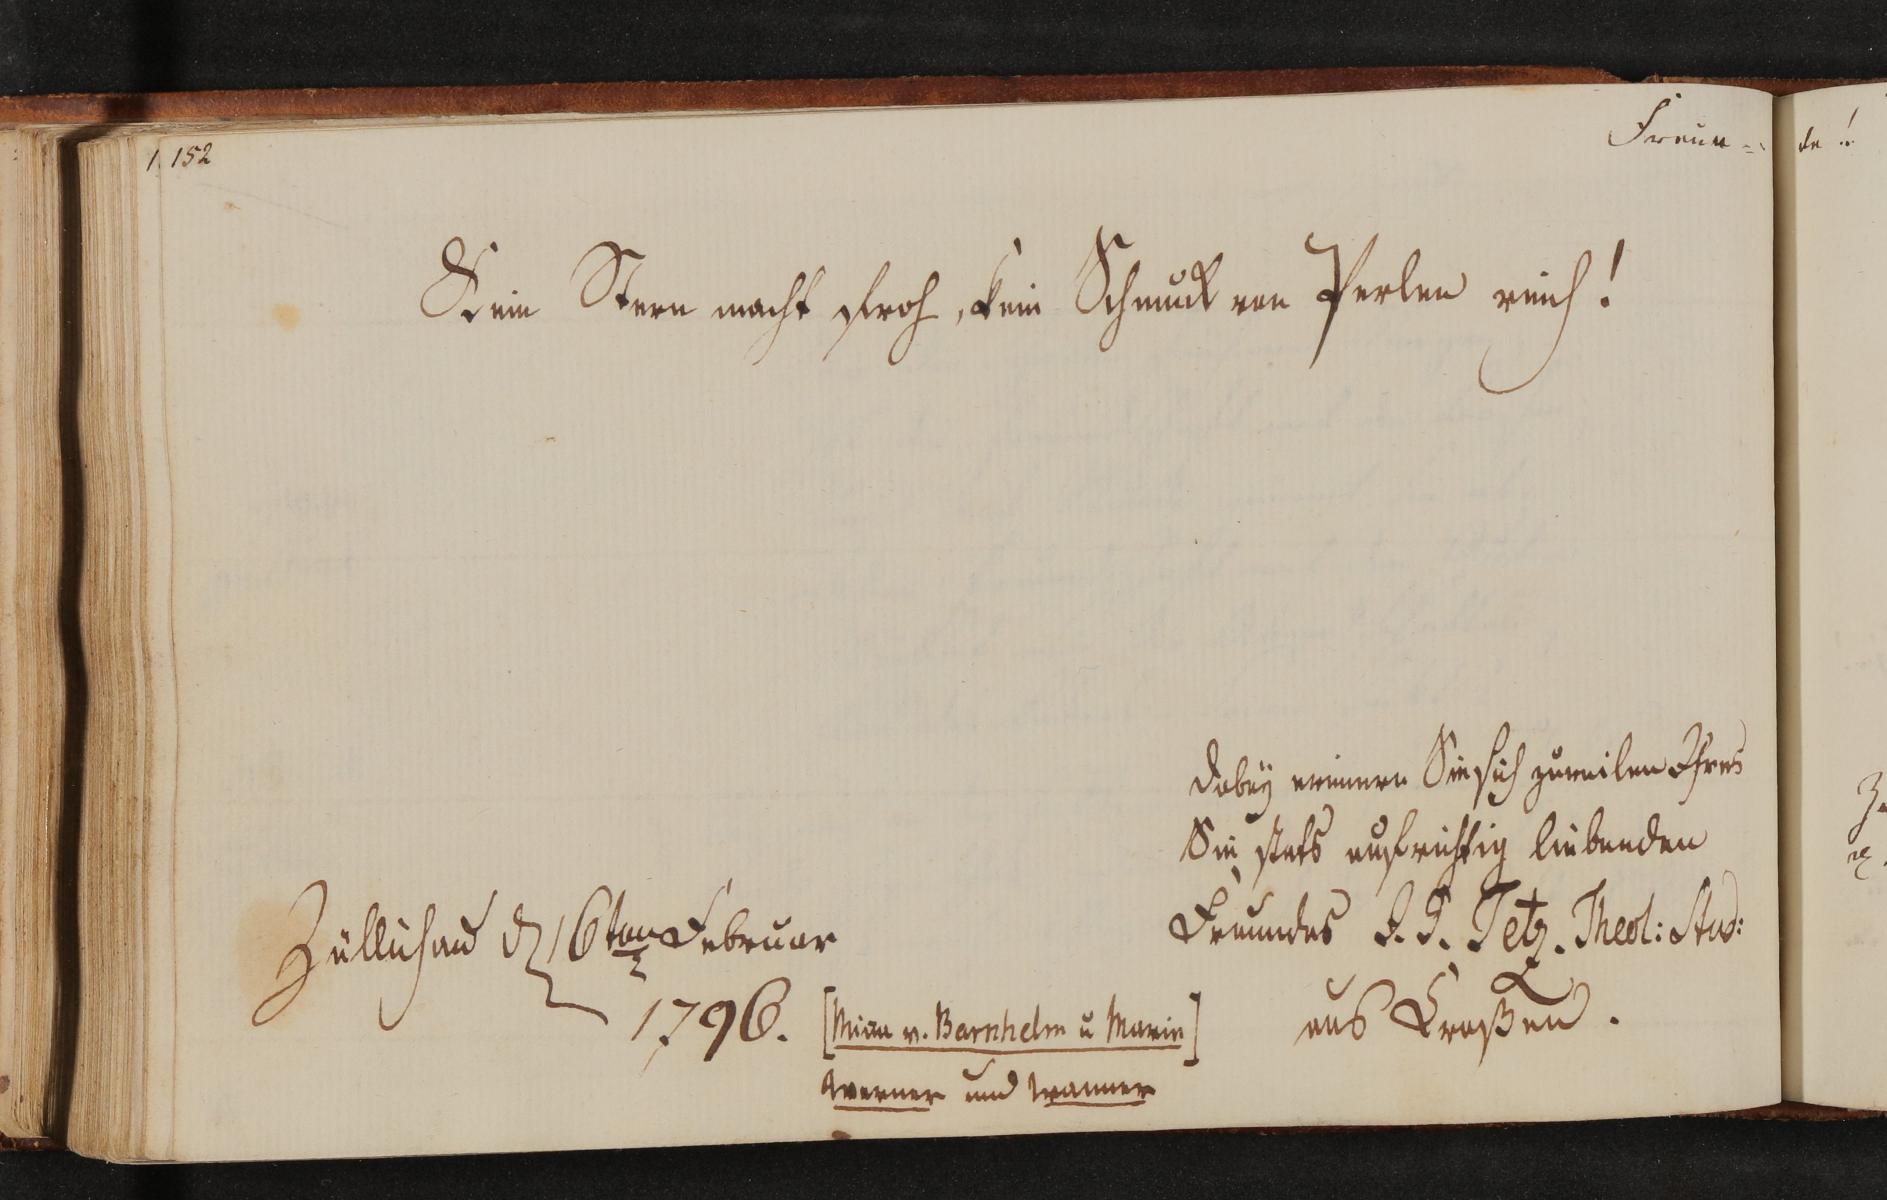 1. 152
Freun=
de!
Kein Stern macht froh, kein Schmuck von Perlen reich!
Dabey erinnern Sie sich zuweilen Ihres
Sie stets aufrichtig liebenden
Freundes J. G. Tetz. Theol: Stud:
aus Croßen.
Züllichau d 16ten Februar
1796.
[Minna v. Barnhelm u Marie]
Werner und Wanner